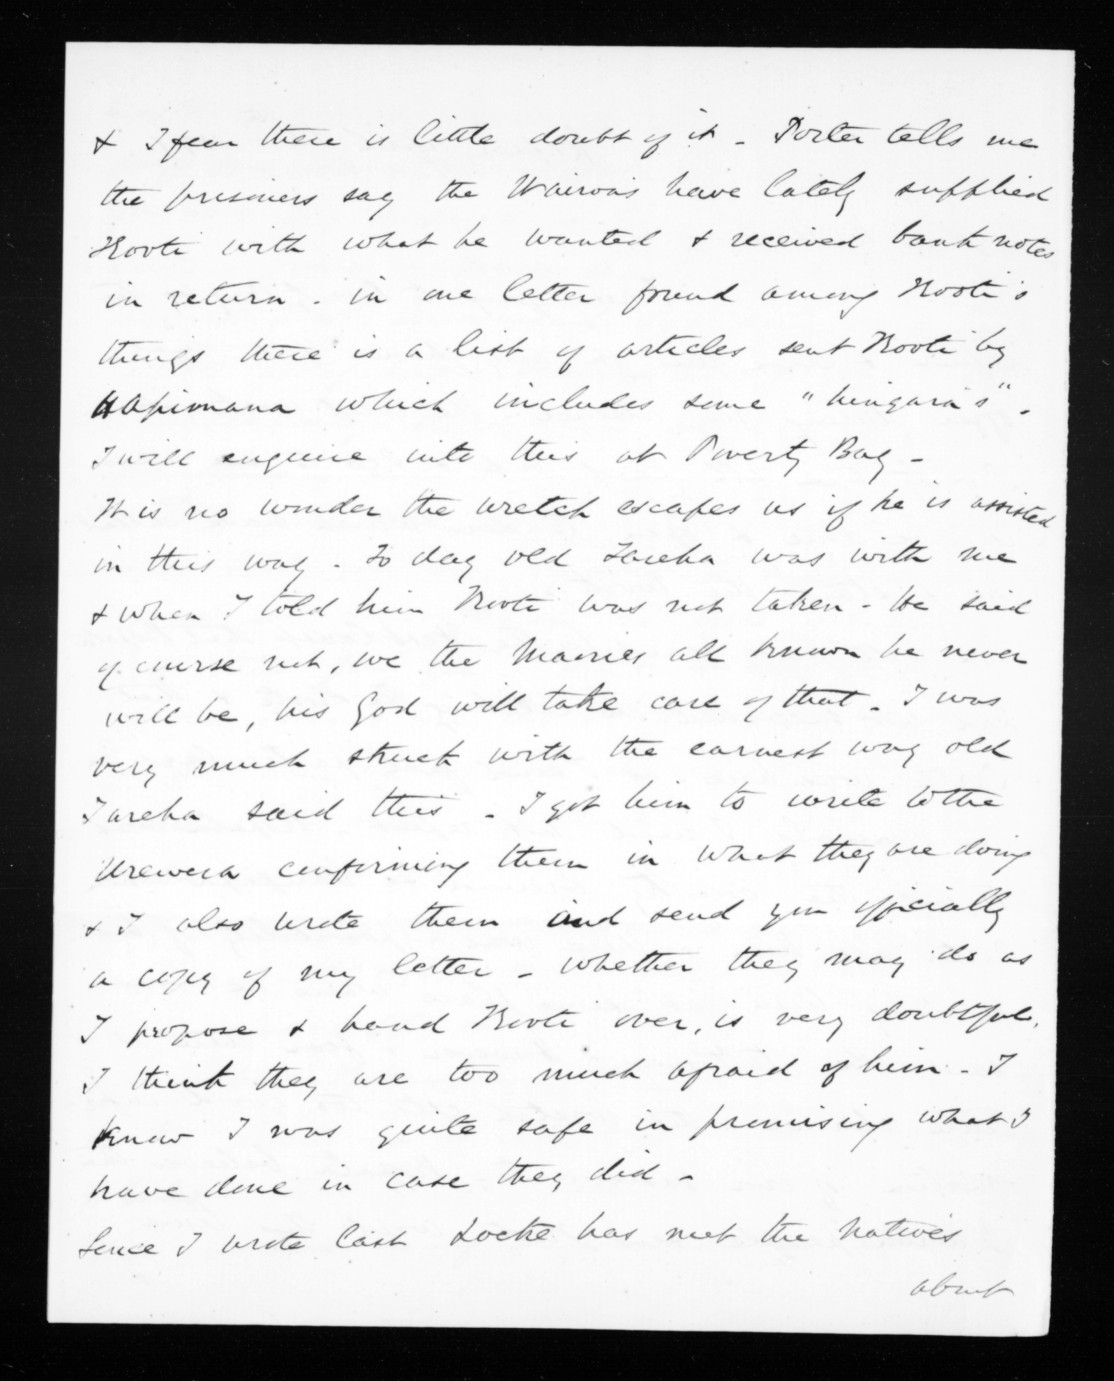 & I fear there is little doubt of it - Porter tells me
the prisoners say the Wairoa's have lately supplied
Kooti with what he wanted & received bank notes
in return - in one letter found among Kooti's
things there is a list of articles sent Kooti by
Hapimana which includes some "hingara's" -
I will enquire into this at Poverty Bay -
It is no wonder the wretch escapes us if he is assisted
in this way - To day old Tareha was with me
& when I told him Kooti was not taken - He said
of course not, we the Maories all know he never
will be, his God will take care of that - I was
very much struck with the earnest way old
Tareha said this - I got him to write to the
Urewera confirming them in what they are doing
& I also wrote them and send you officially
a copy of my letter - whether they may do as
I propose & hand Kooti over, is very doubtful,
I think they are too much afraid of him - I
know I was quite safe in promising what I
have done in case they did -
Since I wrote last Locke has met the Natives
about